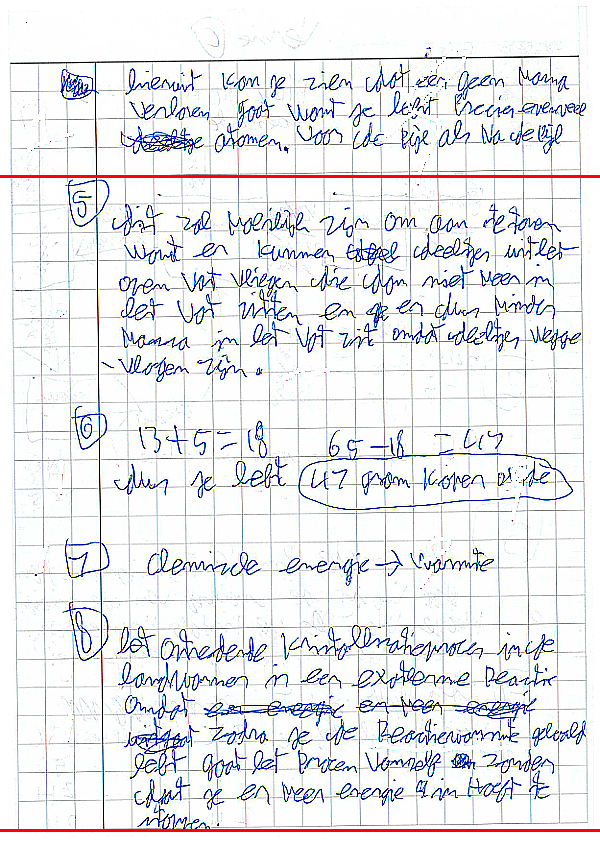 hieruit kan je zien dat er geen massa
verloren gaat want je hebt precies evenveel
atomen. voor de pijl als na de pijl
5 dit zal moeilijk zijn om aan te tonen
want er kunnen deeltjes uit het
open vat vliegen die dan niet meer in
het vat zitten en er dus minder
massa in het vat zit omdat deeltjes wegge
-vlogen zijn.
6 13+5=18 65-18 =47
dus je hebt 47 gram koper oxide
7 Chemische energie → warmte
8 het omkeerde kristallisatieproces in je
handwarmer is een exotherme reactie
omdat
zodra je de reactiewarmte gehaald
hebt gaat het proces vanzelf zonder
dat je er meer energie in hoeft te
stomen.